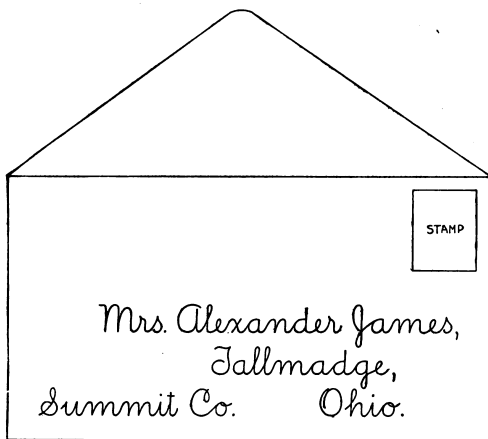 STAMP
Mrs. Alexander James,
Tallmadge,
Summit Co. Ohio.